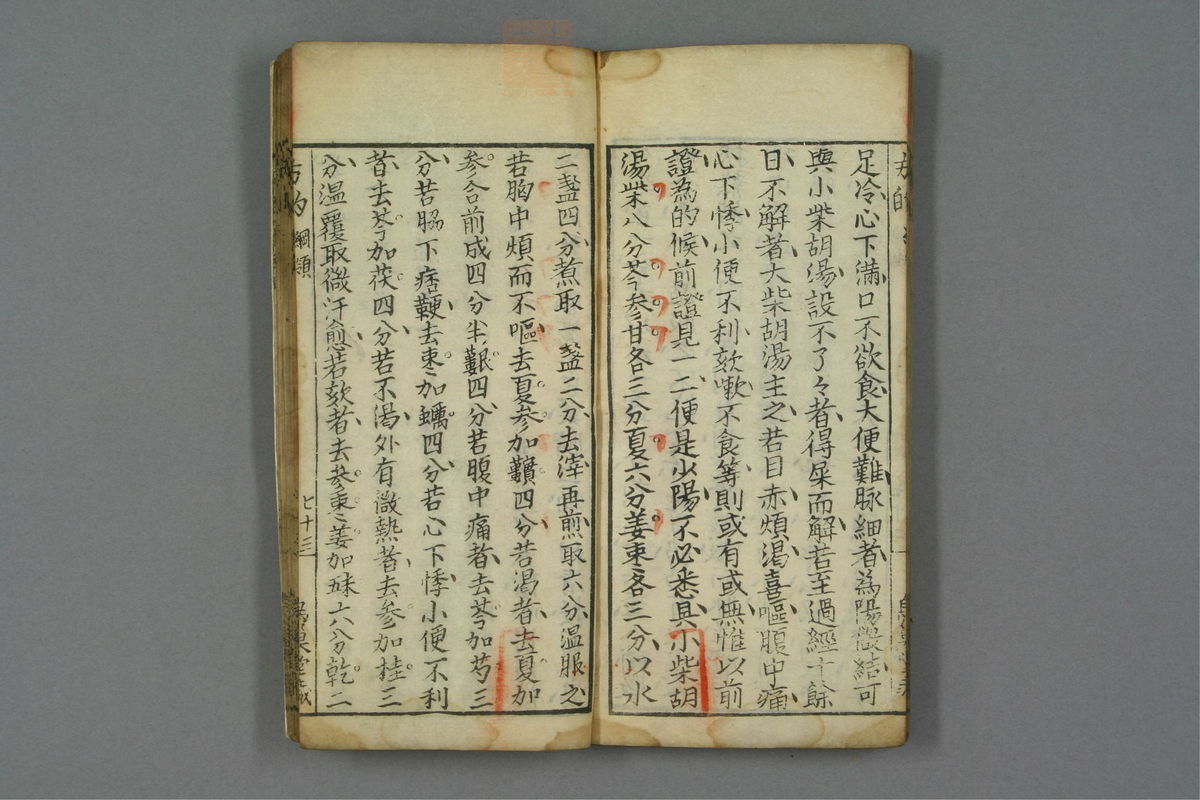 足冷心下滿口不欲食大便難脉細者為陽微結可
與小柴胡湯設不了々者得屎而解若至過經十餘
日不解者大柴胡湯主之若目赤煩渴喜嘔腹中痛
心下悸小便不利欬嗽不食等則或有或無惟以前
證為的候前證見一二便是少陽不必悉具小柴胡
湯柴八分芩参甘各三分夏六分姜枣各三分以水
二盞四分煮取一盞二分去滓再煎取六分温服之
若胸中煩而不嘔去夏参加蔞四分若渴者去夏加
参合前成四分半蔞四分若腹中痛者去芩加芍三
分若脇下痞鞕去枣加蠣四分若心下悸小便不利
者去芩加茯四分若不渴外有微熱者去参加桂三
分温覆取微汗愈若欬者去参枣姜加味六分乾二
方的
綱類
七十三